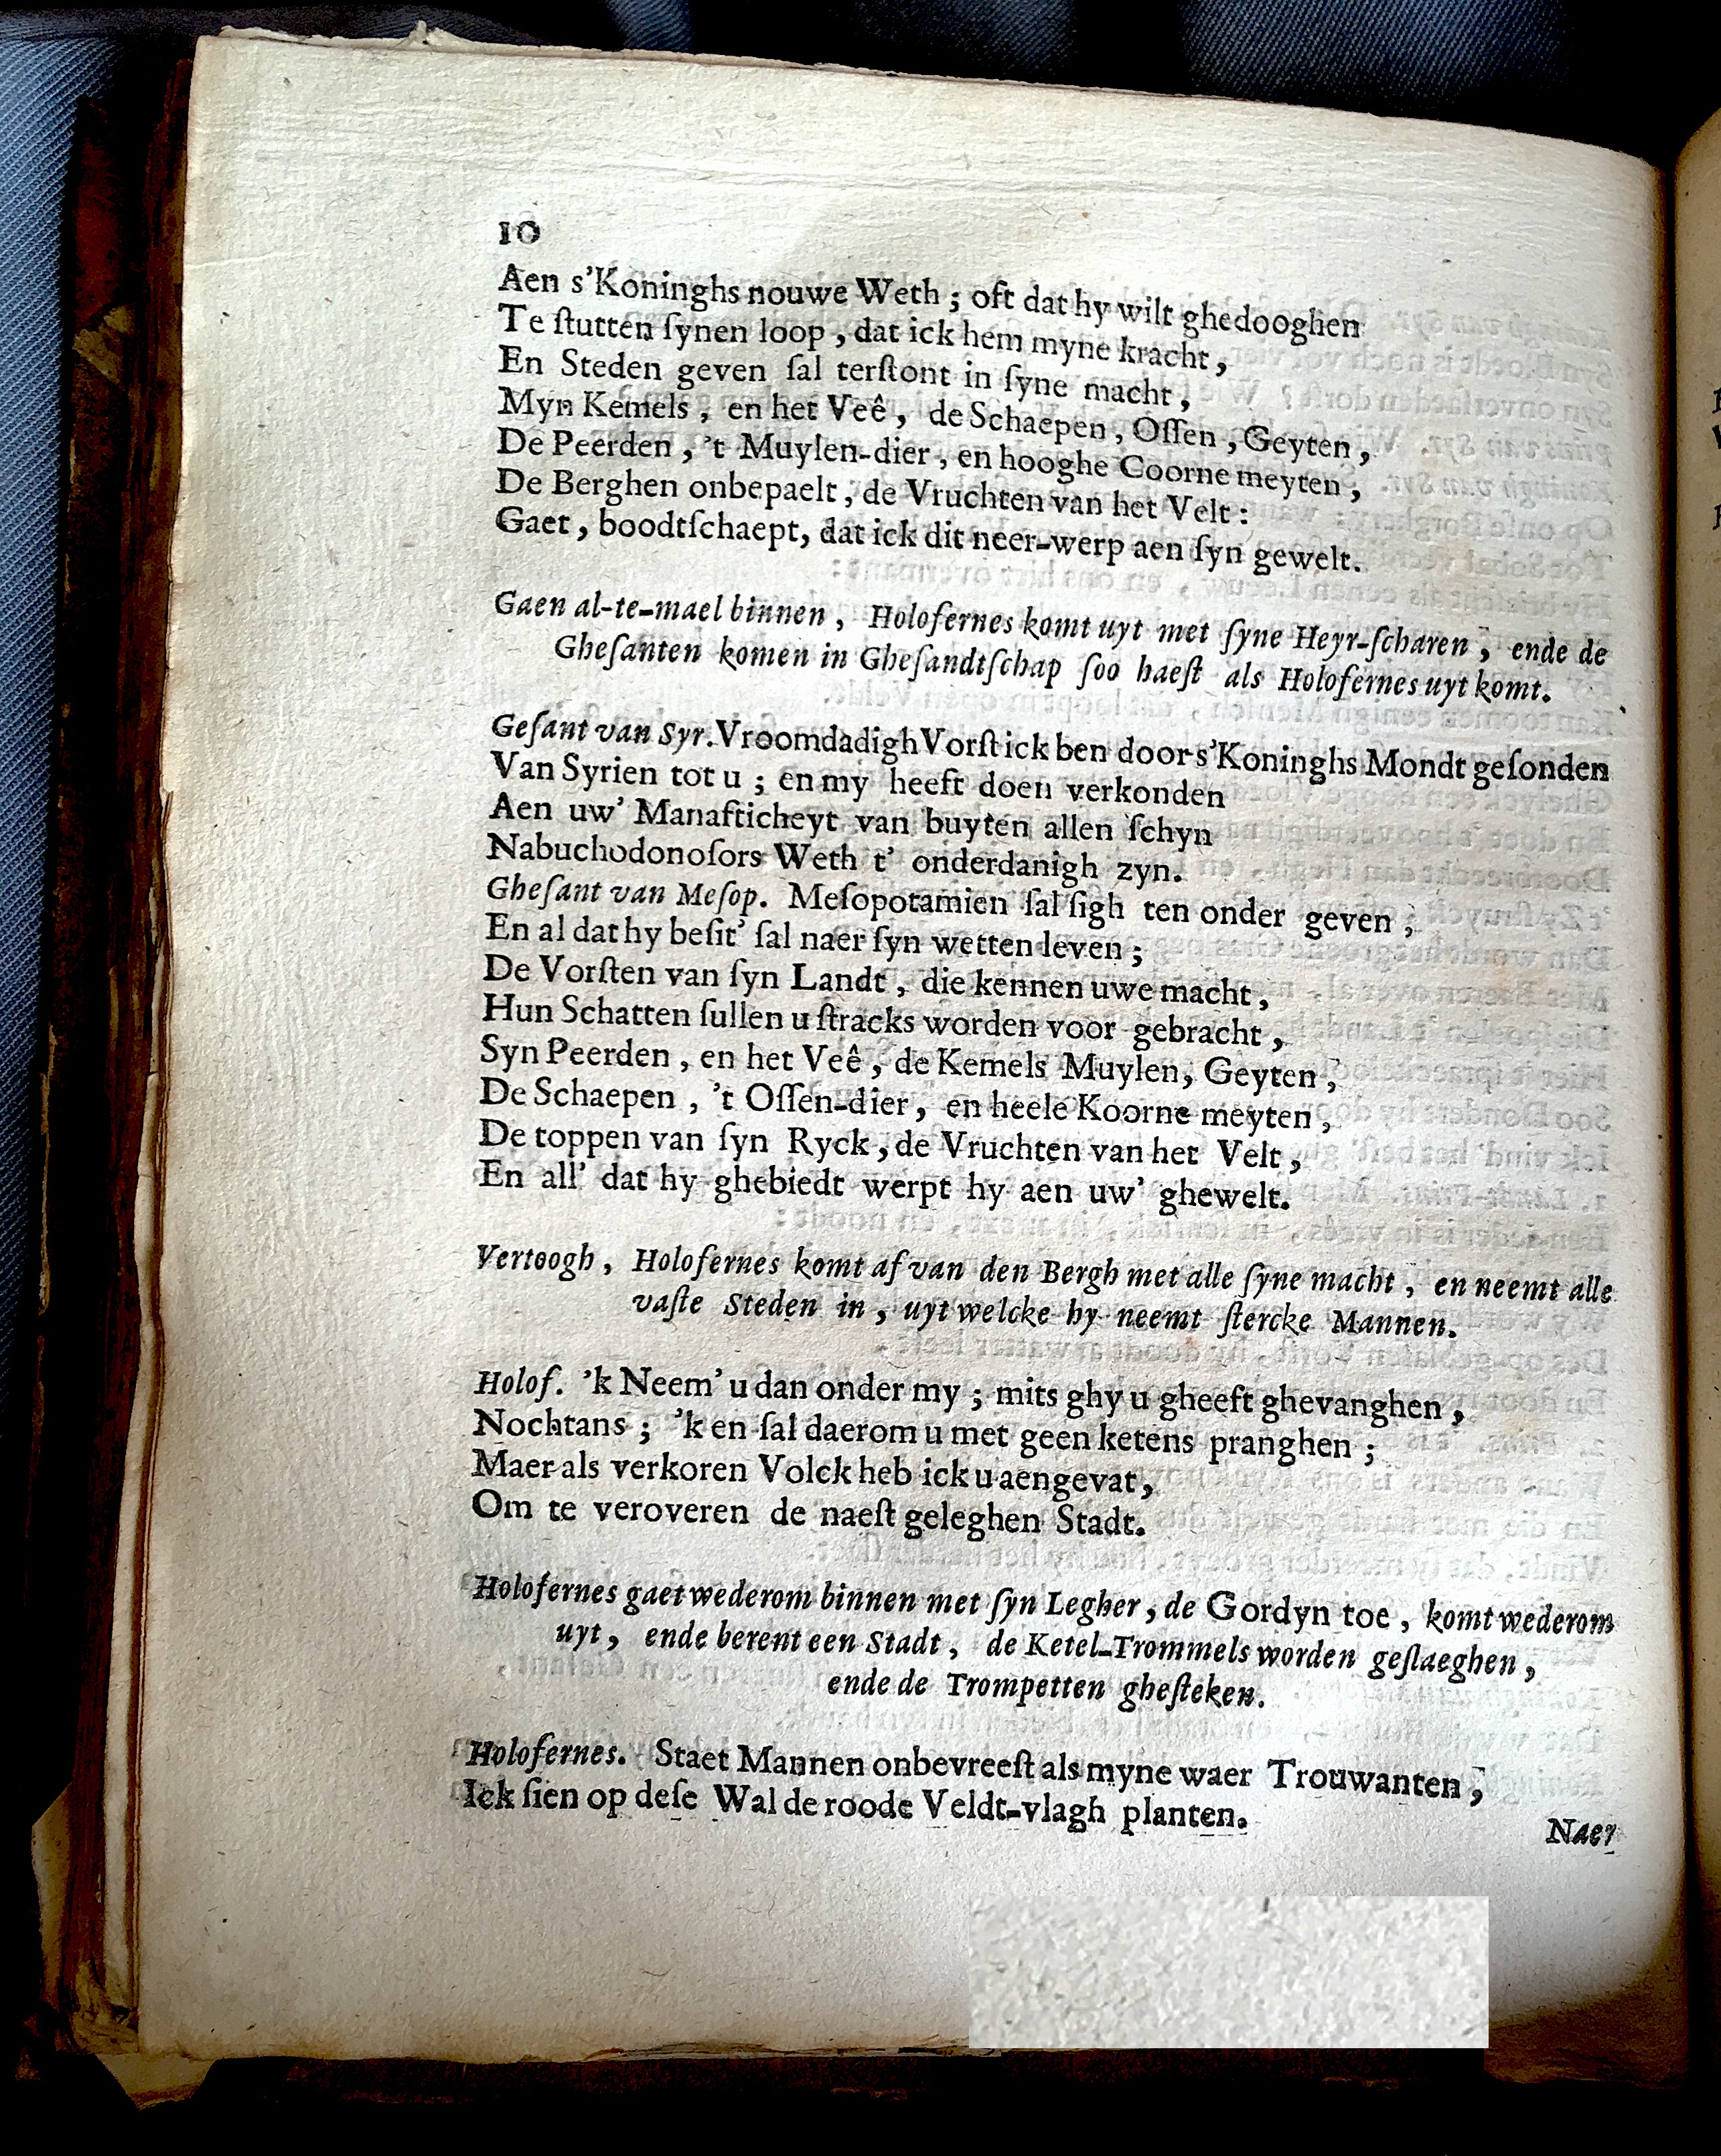 10
Aen s'Koninghs nouwe Weth ; oft dat hy wilt ghedooghen
Te ſtutten ſynen loop , dat ick hem myne kracht ,
En Steden geven ſal terſtont in ſyne macht ,
Myn Kemels , en het Veê , de Schaepen , Oſſen , Geyten ,
De Peerden , 't Muylen-dier , en hooghe Coorne meyten ,
De Berghen onbepaelt , de Vruchten van het Velt :
Gaet , boodtſchaept, dat ick dit neer-werp aen ſyn gewelt.
Gaen al-te-mael binnen , Holofernes komt uyt met ſyne Heyr-ſcharen , ende de
Gheſanten komen in Gheſandtſchap ſoo haeſt als Holofernes uyt komt.
Geſant van Syr. Vroomdadigh Vorſt ick ben door s'Koninghs Mondt geſonden
Van Syrien tot u ; en my heeft doen verkonden
Aen uw' Manafticheyt van buyten allen ſchyn
Nabuchodonoſors Weth t' onderdanigh zyn.
Gheſant van Meſop. Meſopotamien ſal ſigh ten onder geven ,
En al dat hy beſit' ſal naer ſyn wetten leven ;
De Vorſten van ſyn Landt , die kennen uwe macht ,
Hun Schatten ſullen u ſtracks worden voor gebracht ,
Syn Peerden , en het Veê , de Kemels Muylen, Geyten ,
De Schaepen , 't Oſſen-dier, en heele Koorne meyten ,
De toppen van ſyn Ryck , de Vruchten van het Velt ,
En all' dat hy ghebiedt werpt hy aen uw' ghewelt.
Vertoogh , Holofernes komt af van den Bergh met alle ſyne macht , en neemt alle
vaſte Steden in , uyt welcke hy neemt ſtercke Mannen.
Holof. 'k Neem' u dan onder my ; mits ghy u gheeft ghevanghen ,
Nochtans ; 'k en ſal daerom u met geen ketens pranghen ;
Maer als verkoren Volck heb ick u aengevat ,
Om te veroveren de naeſt geleghen Stadt.
Holofernes gaet wederom binnen met ſyn Legher , de Gordyn toe , komt wederom
uyt , ende berent een Stadt , de Ketel-Trommels worden geſlaeghen ,
ende de Trompetten gheſteken.
Holofernes. Staet Mannen onbevreeſt als myne waer Trouwanten ,
Ick ſien op deſe Wal de roode Veldt-vlagh planten.
Naer